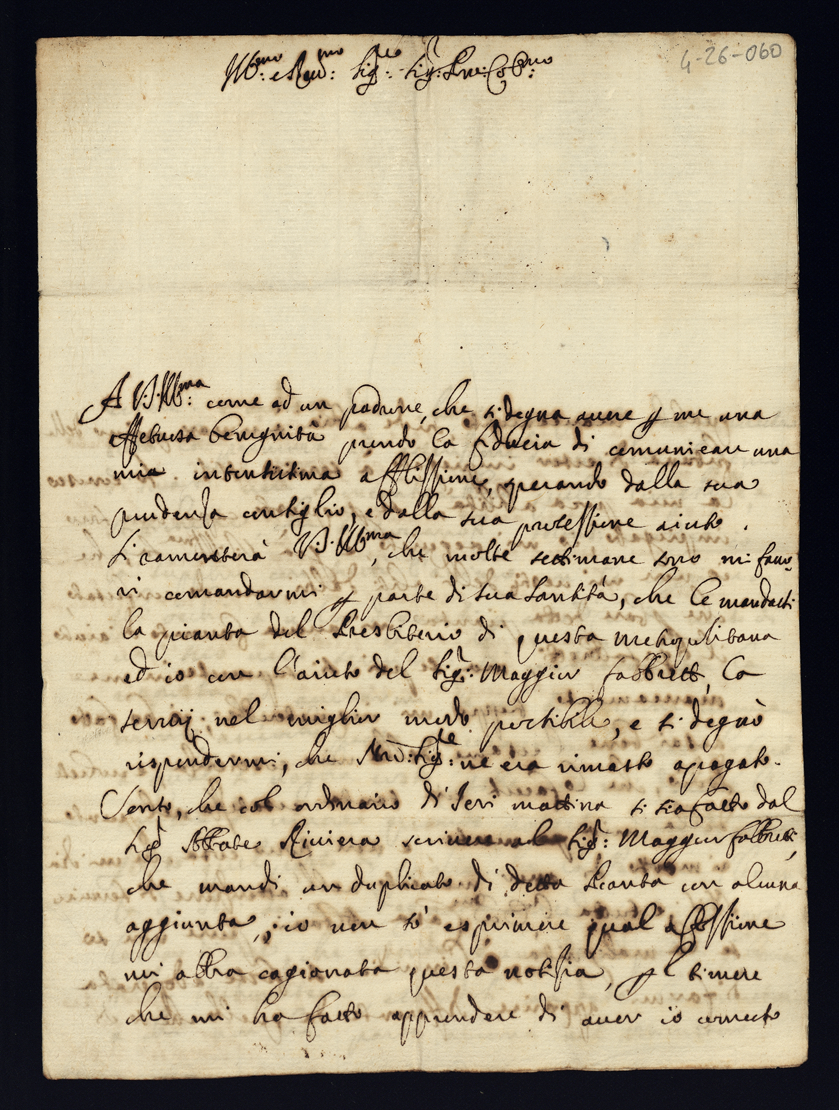 4-26-060
Ill:mo e Rev:mo Sig:re Sig:r Pne: Col:mo
A V.S. Ill:ma come ad un padrone, che si degna avere p me una
affettuosa benignità prendo la fiducia di comunicare una
mia intentissima afflissione, sperando dalla sua
prudenza consiglio, e dalla sua protessione aiuto.
Si ramenterà V.S. Ill:ma, che molte settimane sono mi favo-
rì comandarmi p parte di Sua Santità, che le mandassi
la pianta del Presbiterio di questa metropolitana
ed io con l'aiuto del Sig:r Maggior Fabbretti, la
servij nel miglior modo possibile, e si degnò
rispondermi, che Nro: Sig:re ne era rimasto apagato.
Sento, che col ordinario di Ieri mattina si sia fatto dal
Sig:r Abbate Riviera scrivere al Sig:r Maggior Fabbretti,
che mandi un duplicato di detta Pianta con alcuna
aggiunta, io non sò esprimere qual aflissione
mi abbia cagionata questa notizia, p il timore
che mi ha fatto apprendere di aver io comesso